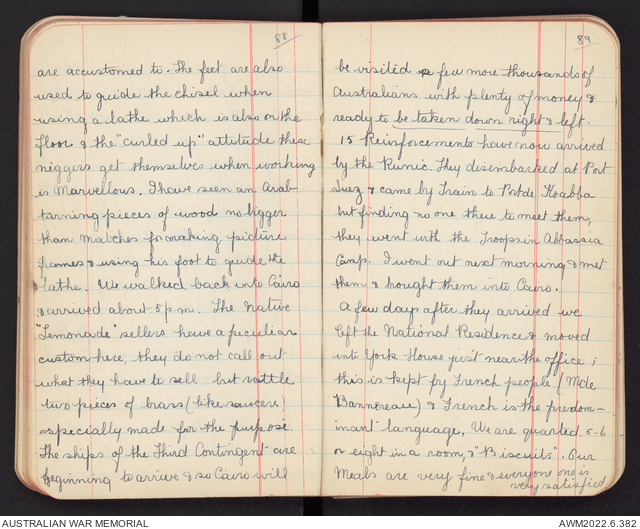 88
are accustomed to. The feet are also
used to guide the chisel when
using a lathe which is also on the
floor & the "curled up" attitude these
niggers get themselves when working
is Marvellous. I have seen an Arab
turning pieces of wood no bigger
than matches for making picture
frames & using his foot to guide the
lathe. We walked back into Cairo
& arrived about 5 p.m. The native
"Lemonade" sellers have a peculiar
custom here, they do not call out
what they have to sell but rattle
two pieces of brass (like saucers)
especially made for the purpose.
The ships of the Third Contingent are
beginning to arrive & so Cairo will
89
be visited few more thousands of
Australians with plenty of money &
ready to be taken down right & left.
15 Reinforcements have now arrived
by the Runic. They disembarked at Port
Suez & came by Train to Port de Koubba
but finding no one there to meet them,
they went with the Troops in Abbassia
Camp. I went out next morning & met
them & brought them into Cairo.
A few days after they arrived we
left the National Residence & moved
into York House just near the office ;
this is kept by French people (Mdle
Bannereau) & French is the predom-
inant language. We are quarted 5-6
or eight in a room, & "Biscuits". Our
Meals are very fine & everyone one is
very satisfied
AUSTRALIAN WAR MEMORIAL
AWM2022.6.382